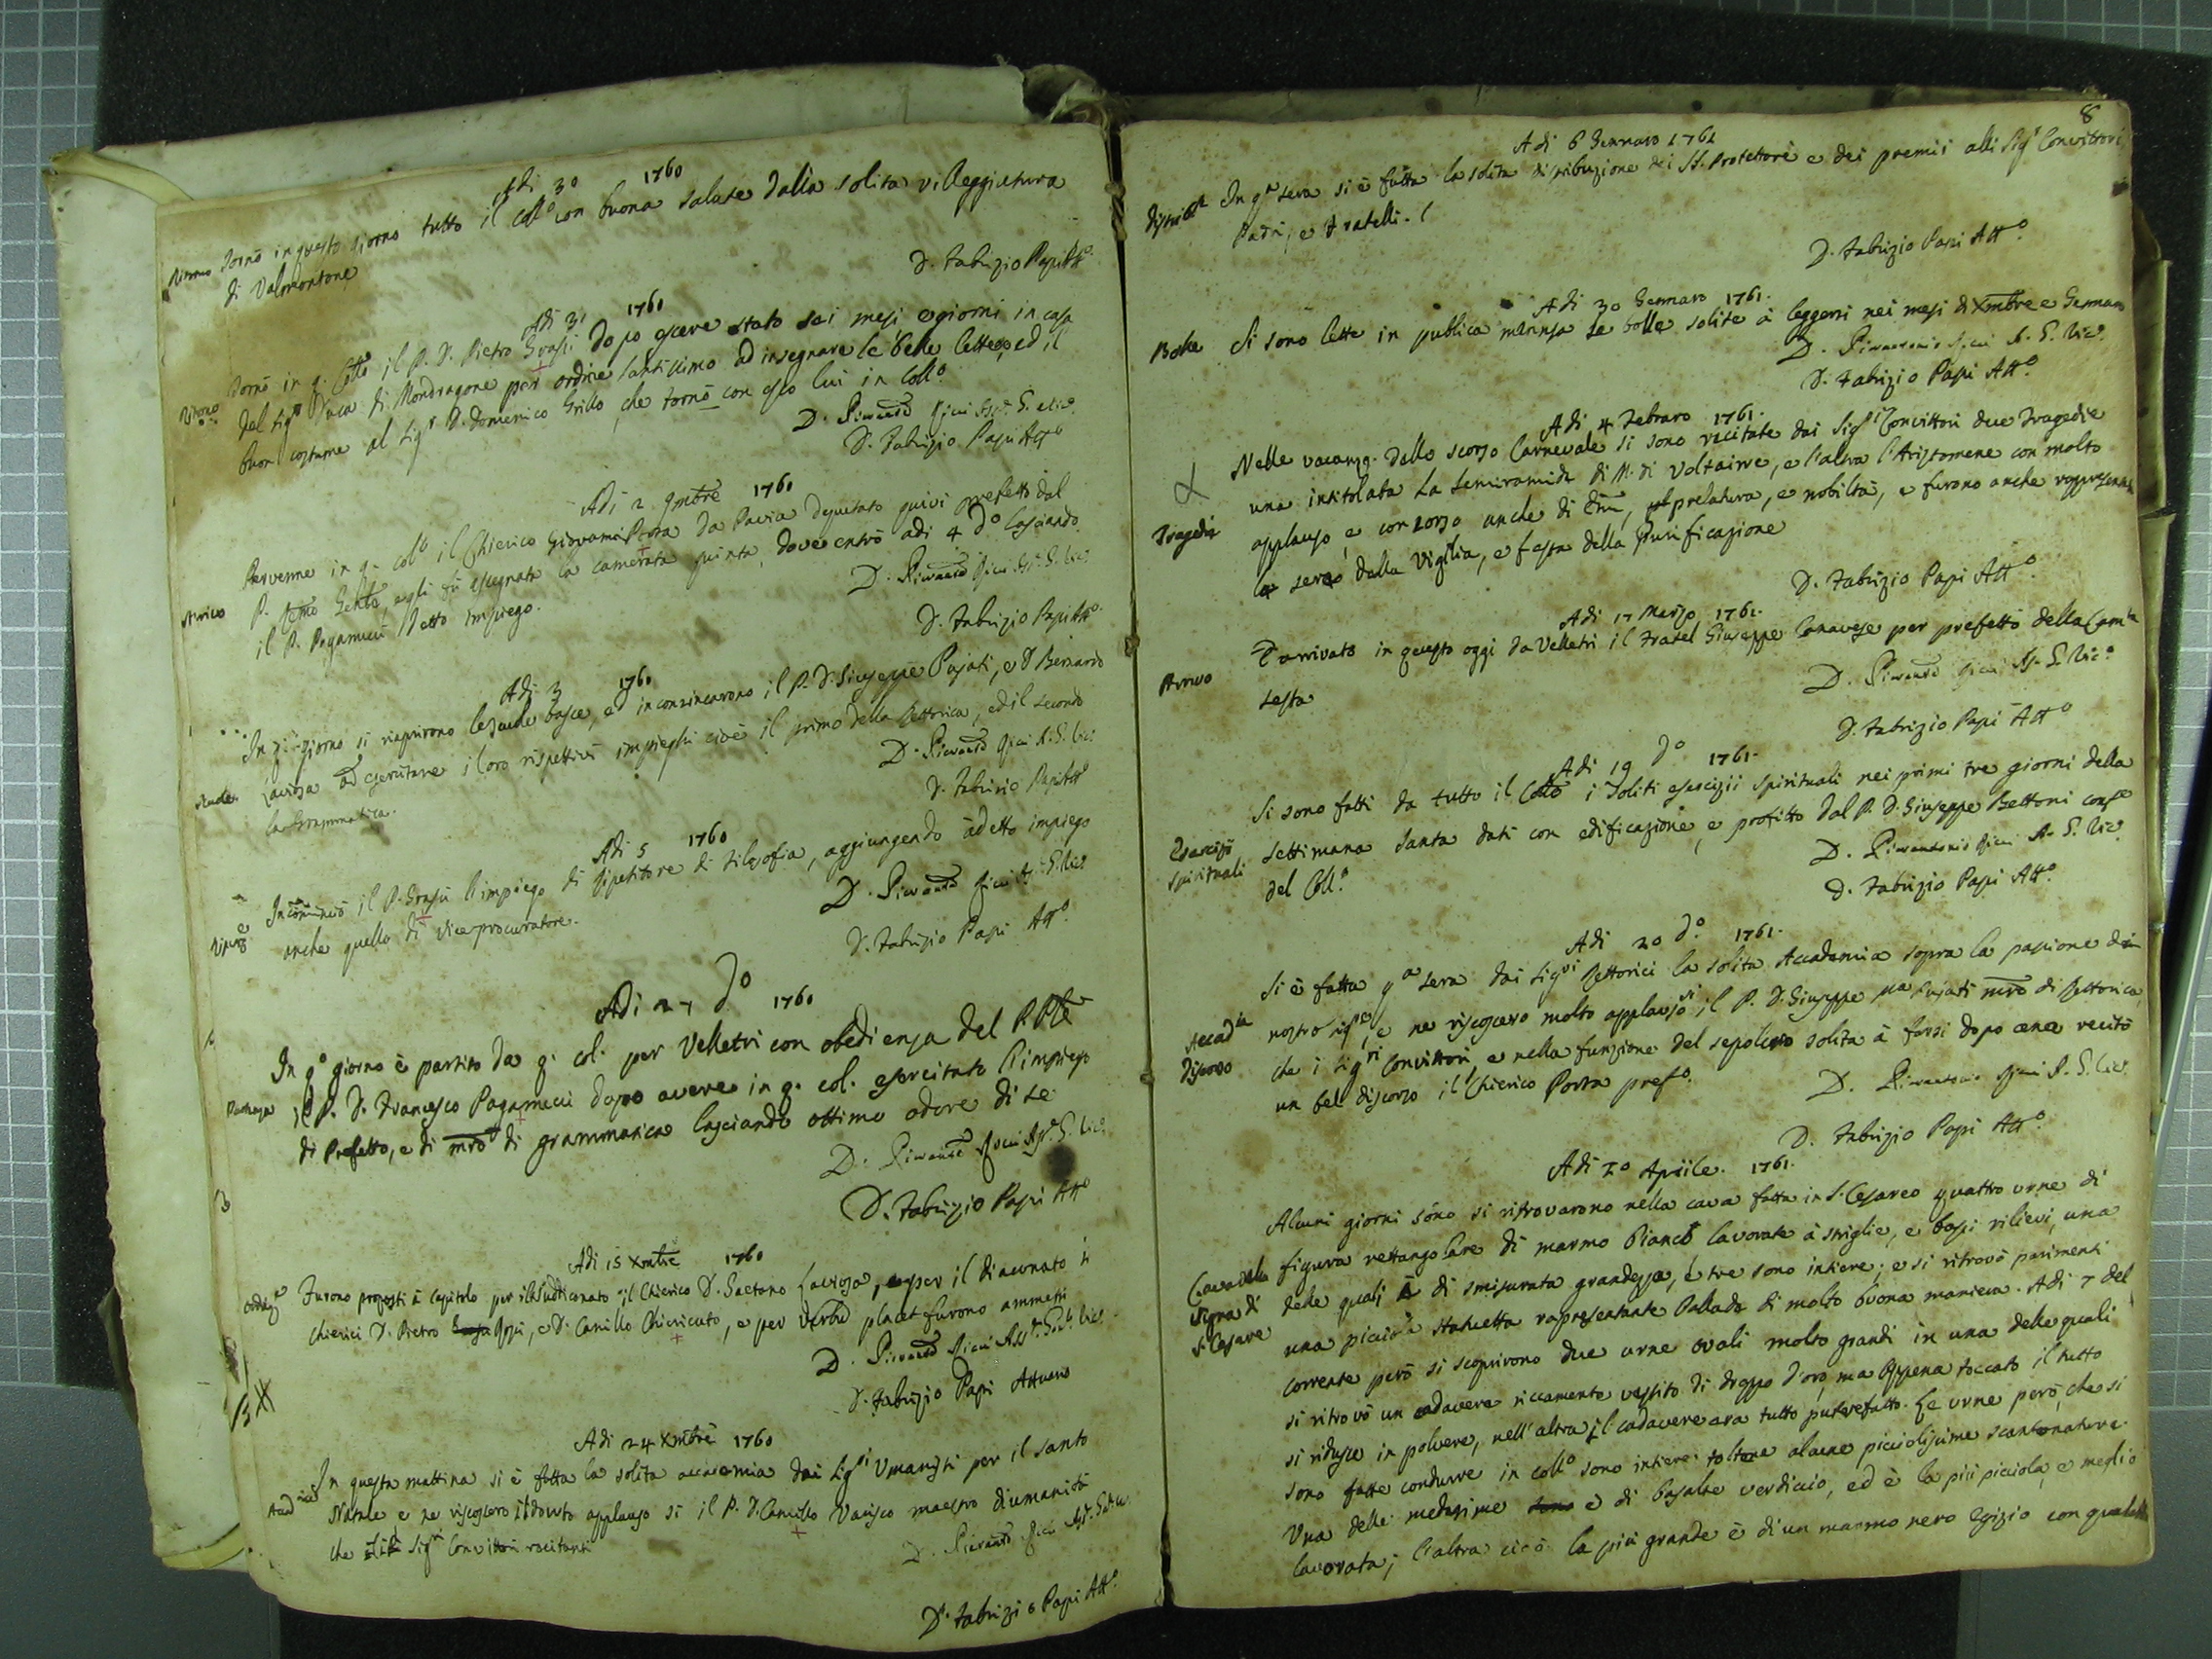 Adi 30 1760
Ritorno Tornò in questo giorno tutto il Coll.o con buona salute dalla solita villeggiatura
di Valmontone
D. Fabrizio Papi Att.o
Adi 31 1760
Ritorno Tornò in q. Collo il P. D. Pietro Grassi dopo essere stato sei mesi e giorni in casa
del Sig.r Duca di Mondragone per ordine Santissimo ad insegnare le belle lettere, ed il
buon costume al Sig.r D. Domenico Grillo, che tornò con esso lui in Coll.o
D. Fabrizio Papi Att.o
Adi 2 9mbre 1760
Pervenne in q. col.o il Chierico Giovanni Porta da Pavia deputato quivi prefetto dal
Arrivo P. , e gli fù assegnata la camerata quinta, dove entrò adi 4 d.o lasciando
il P. Paganucci detto impiego.
D. Fabrizio Papi Att.o
Adi 3 1760
In q. giorno si riaprirono le scuole basse, ed incominciarono il P. D. Giuseppe Pujati, e D. Bernardo
Scuole Laviosa ad esercitare i loro rispettivi impieghi cioè il primo della Rettorica, ed il secondo
la Grammatica.
D. Fabrizio Papi Att.o
Adi 5 1760
Incominciò il P. Grassi l'impiego di ripetitore di Filosofia, aggiungendo à detto impiego
anche quello di Vice procuratore.
D. Fabrizio Papi Att.o
Adi 27 d.o 1760
In q.o giorno è partito da q. col. per Velletri con obedienza del P. Ple
Partenza il P. D. Francesco Paganucci dopo avere in q. col. esercitato l'impiego
di Prefetto, e di mro di grammatica lasciando ottimo odore di se
D. Fabrizio Papi Att.o
Adi 15 Xmbre 1760
Furono proposti à Capitolo per il Suddiconato il Chierico D. Gaetano Laviosa, e per il diaconato i
Chierici D. Pietro Oppi, e D. Camillo Chiericato, e per verbū placet furono ammessi
D. Fabrizio Papi Attuario
Adi 24 Xmbre 1760
In questa mattina si è fatta la solita accademia dai Sig.ri Umanisti per il Santo
Natale e ne riscossero il dovuto applauso si il P. D. Camillo Varisco maestro di umanità
che Sig.ri Convittori recitanti
D. Fabrizio Papi Att.o
8
Adi 6 Gennaro 1761
In q.a sera si è fatta la solita distribuzione dei SS. Protettori e dei premii alli Sig.ri Convittori,
Padri, e Fratelli.
D. Fabrizio Papi Att.o
Adi 30 Gennaro 1761.
Bolle Si sono lette in publica mensa le bolle solite à leggersi nei mesi di Xmbre e Gennaro
D. Fabrizio Papi Att.o
Adi 4 Febraro 1761.
Nelle vacanze dello scorso Carnevale si sono recitate dai Sig.ri Convittori due Tragedie
una intitolata La Semiramide di M. di Voltaire, e l'altra l'Aristomene con molto
Tragedie applauso, e concorso anche di Emi, prelatura, e nobiltà, e furono anche rappresentate
la sera della Vigilia, e festa della Purificazione
D. Fabrizio Papi Att.o
Adi 17 Marzo 1761.
Arrivo È arrivato in questo oggi da Velletri il Fratel Giuseppe Canavese per prefetto della Cam.ta
sesta
D. Fabrizio Papi Att.o
Adi 19 d.o 1761.
Si sono fatti da tutto il Collo i soliti esercizii spirituali nei primi tre giorni della
Esercizii spirituali settimana santa dati con edificazione, e profitto dal P. D. Giuseppe Bettoni conf.re
del Coll.o
D. Fabrizio Papi Att.o
Adi 20 d.o 1761.
Si è fatta q.a sera dai Sig.ri Rettorici la solita Accademia sopra la passione di
Accad.ia nostro Sig.re, e ne riscossero molto applauso si il P. D. Giuseppe Ma Pujati mro di Rettorica
Discorso che i Sig.ri Convittori, e nella funzione del sepolcro solita à farsi dopo cena recitò
un bel discorso il Chierico Porta pref.o.
D. Fabrizio Papi Att.o
Adi Aprile. 1761.
Alcuni giorni sono si ritrovarono nella cava fatta in S. Cesareo quattro urne di
figura rettangolare di marmo bianco lavorate à striglie, e bassi rilievi, una
delle quali è di smisurata grandezza, e tre sono intiere; e si ritrovò parimenti
una picciola statuetta rapresentante Pallade di molto buona maniera. Adi 7 del
corrente però si scoprirono due urne ovali molto grandi in una delle quali
si ritrovò un cadavere riccamente vestito di drappo d'oro, ma appena toccato il tutto
si ridusse in polvere, nell'altra il cadavere era tutto putrefatto. Le urne però, che si
sono fatte condurre in coll.o sono intiere toltone alcune picciolissime scantonature.
Una delle medesime è di basalte verdiccio, ed è la più picciola, e meglio
lavorata; l'altra cioè la più grande è di un marmo nero Egizio con qualche